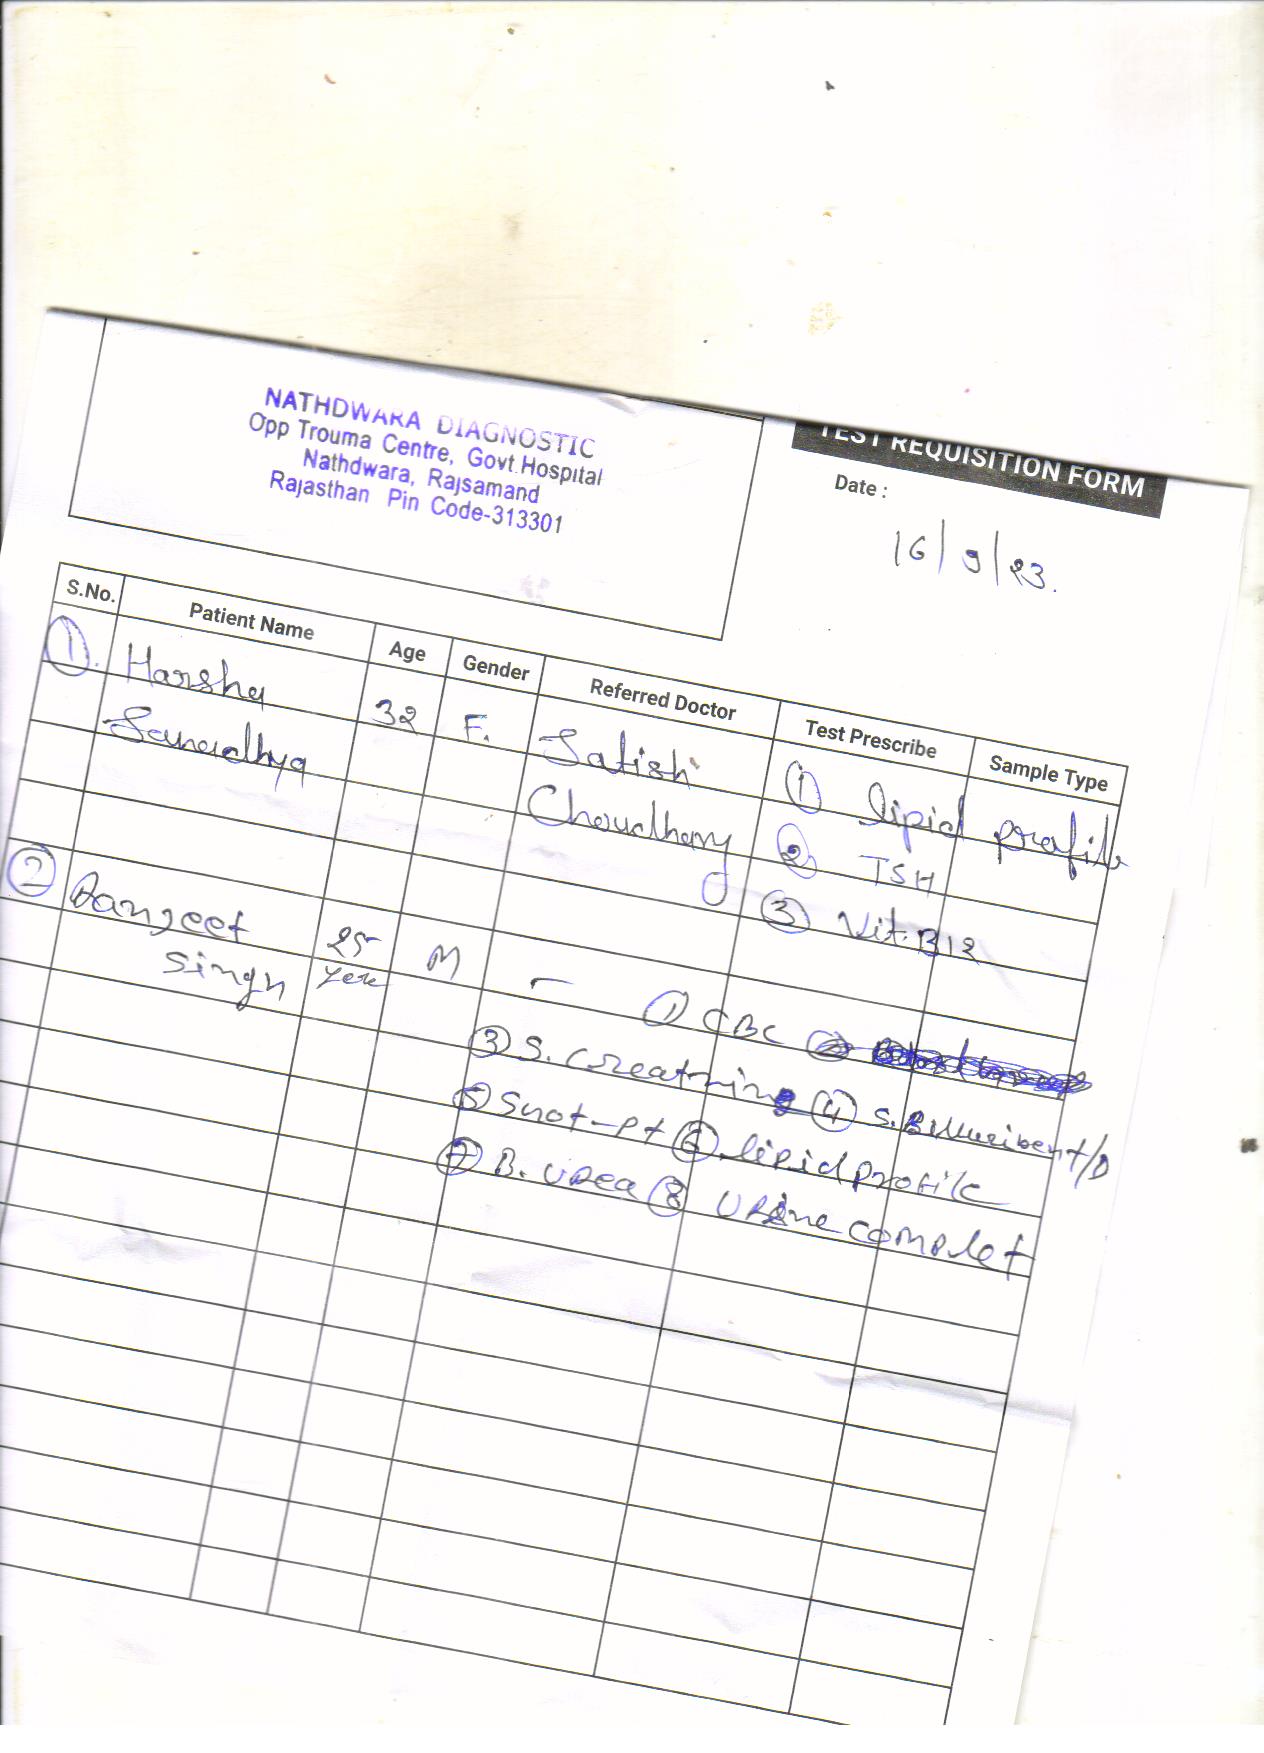 NATHDWARA DIAGNOSTIC
Opp Trouma Centre, Govt. Hospital
Nathdwara, Rajsamand
Rajasthan Pin Code-313301
TEST REQUISITION FORM
Date :
16/9/23.
S.No. Patient Name Age Gender Referred Doctor Test Prescribe Sample Type
1. Harsha 32 F. Satish 1 lipid profile
Sanadhya Choudhary 2 TSH
3 Vit. B12
2 singh 25 M - 1 CBC 2
3 S. Creatnine 4 S. t/D
5 -pt 6 lipid profile
7 B. Urea 8 Urine complet